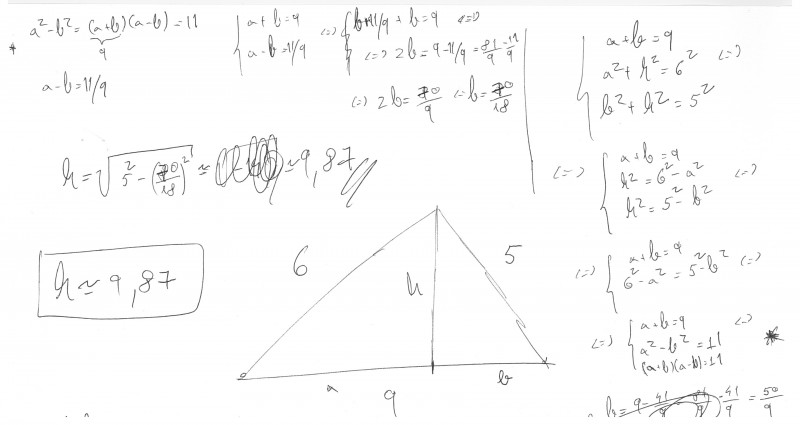 * a² - b² = (a+b)(a-b) = 11
9
a-b = 11/9
{ a+b=9
a-b=11/9
<=> { b+11/9+b=9 <=>
<=> 2b = 9-11/9 = 81/9 - 11/9
<=> 2b = 70/9 <=> b = 70/18
h = √(5² - (70/18)²) ≃ ≃ 9,87
h ≃ 9,87
6
5
h
a
b
9
{ a+b=9
a²+h²=6² <=>
b²+h²=5²
<=> { a+b=9
h²=6²-a² <=>
h²=5²-b²
<=> { a+b=9
6²-a²=5²-b² <=>
<=> { a+b=9 <=>
a²-b²=11 *
(a+b)(a-b)=11
= 9 - 41/9 - 41/9 = 50/9